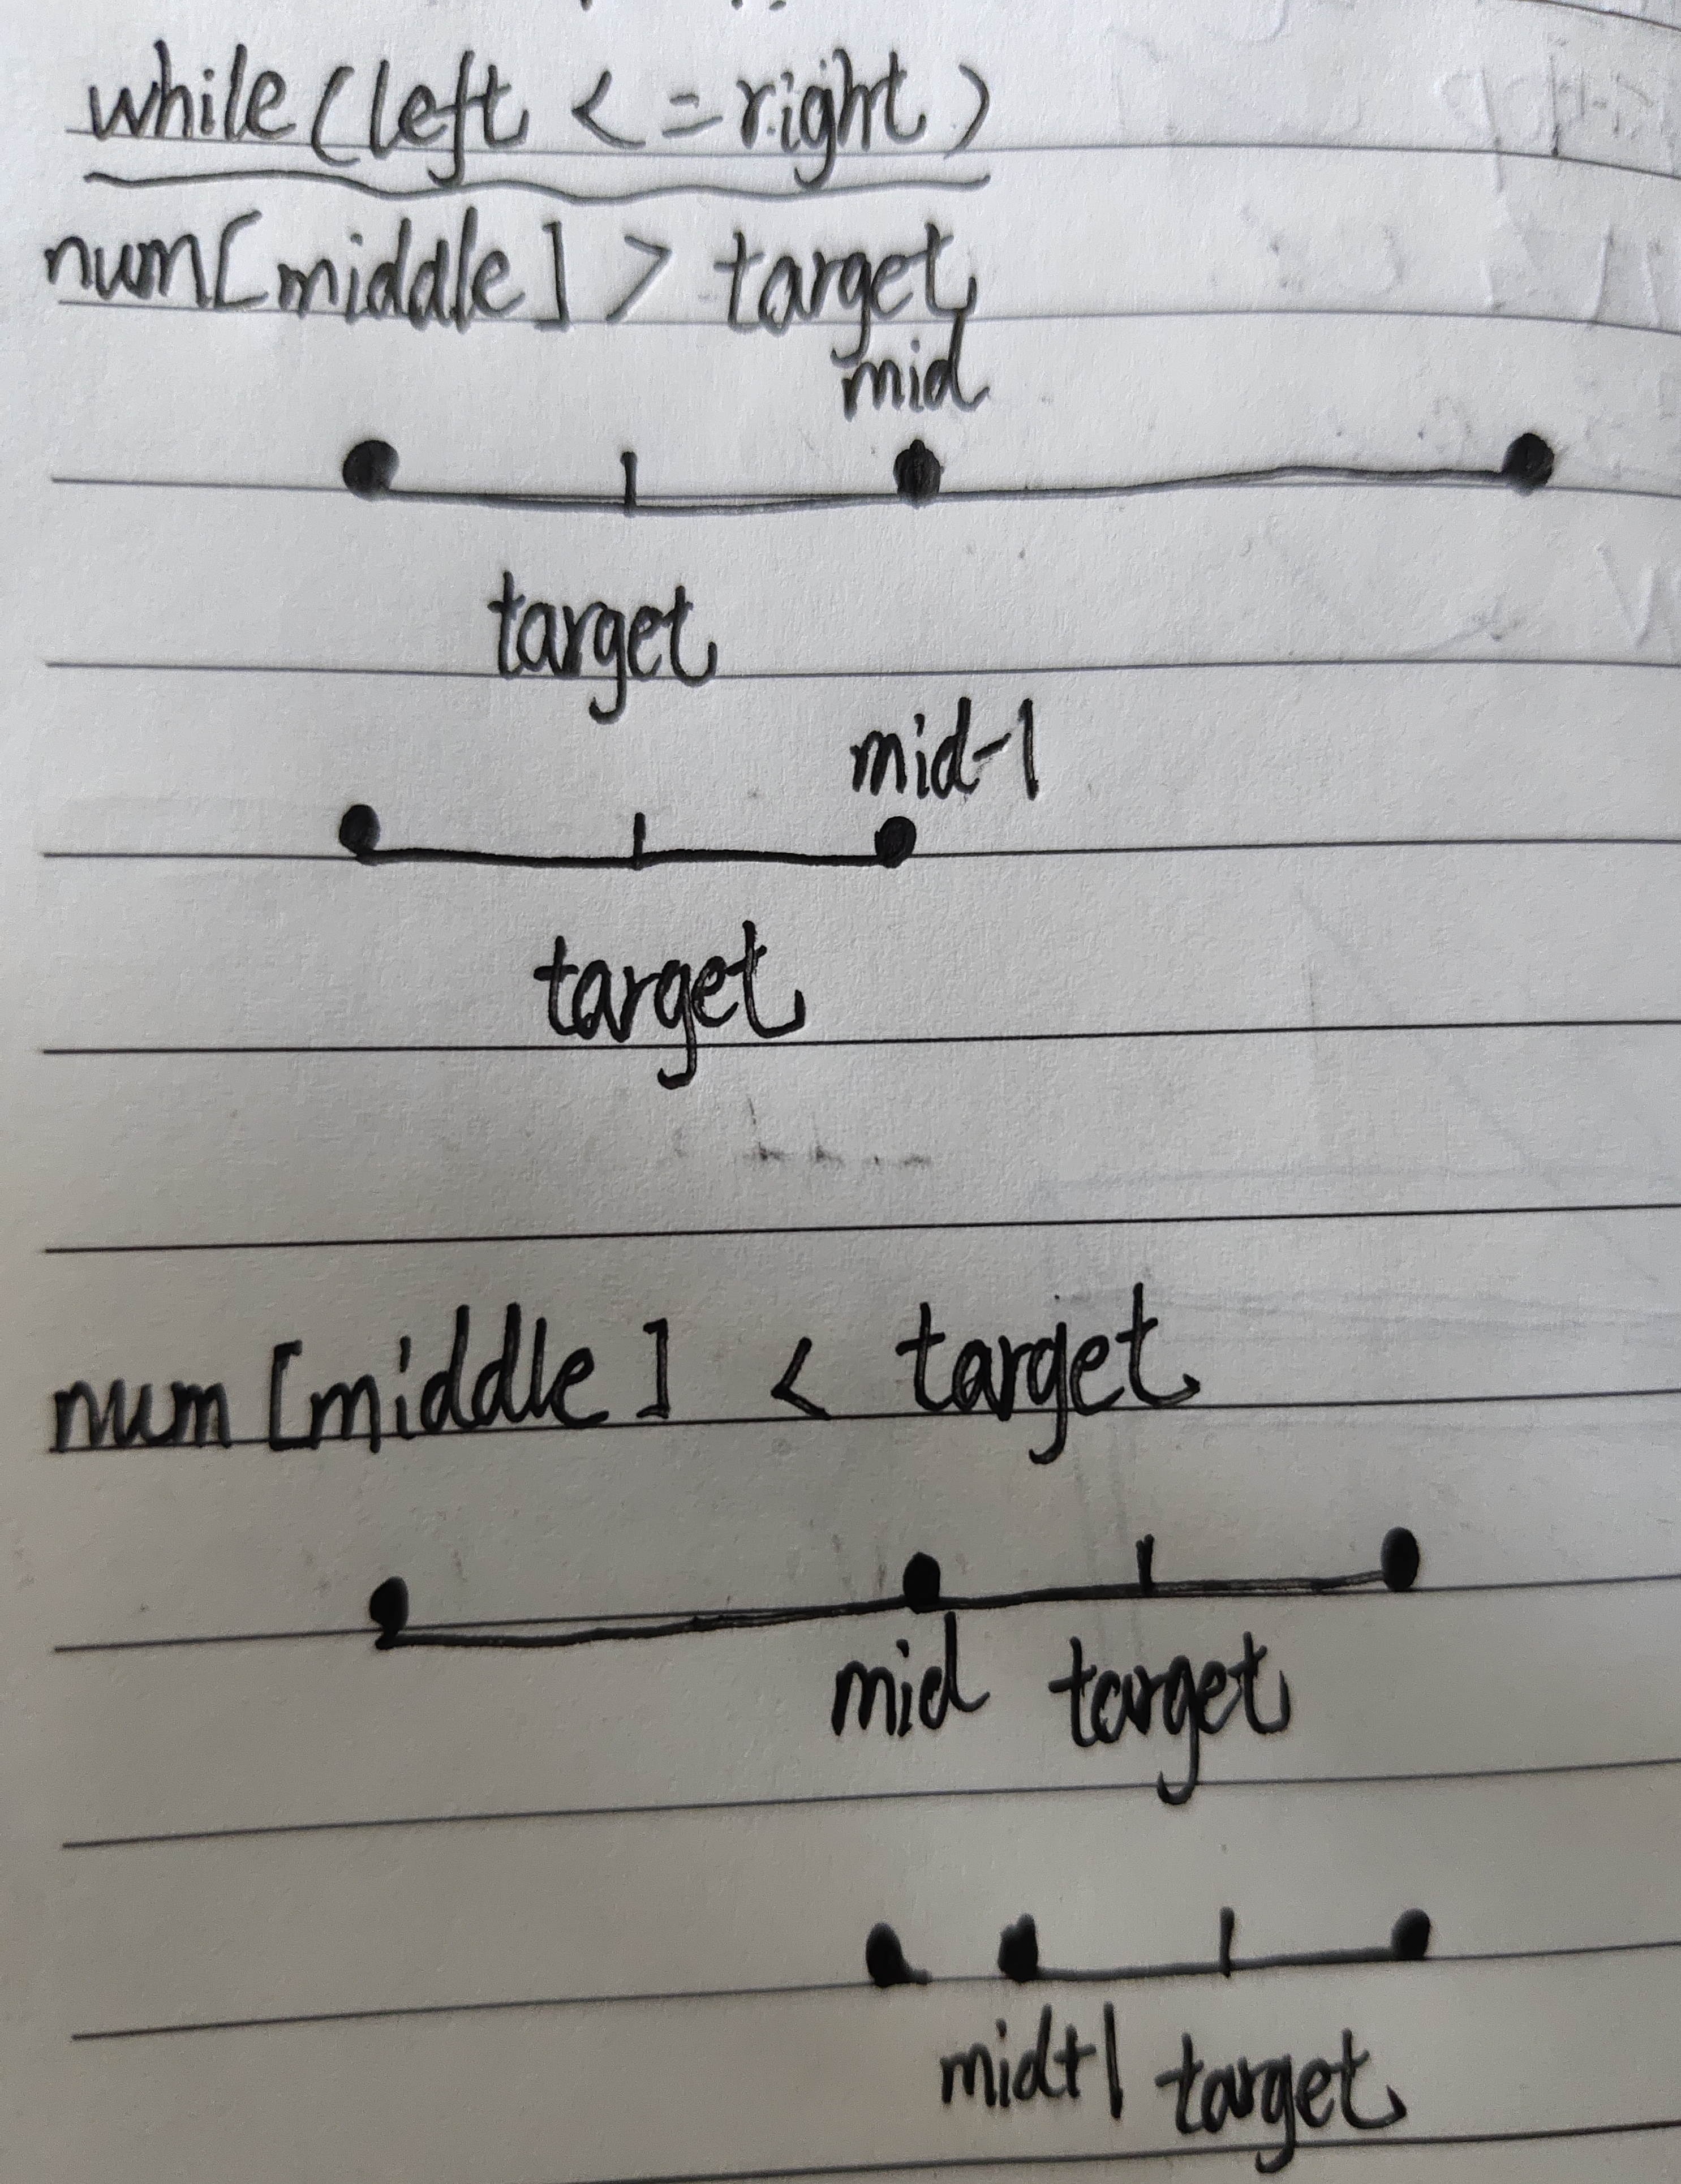 while(left <=right)
num[middle] > target
mid
target
mid-1
target
num[middle] < target
mid target
mid+1 target